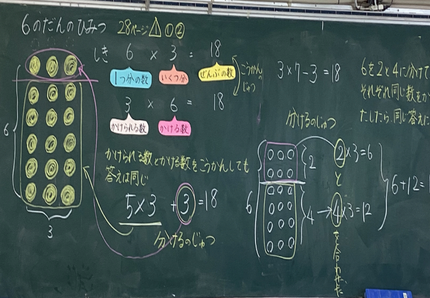 6のだんのひみつ 28ページ
しき 6 × 3 = 18
1つ分の数 いくつ分 ぜんぶの数
3 × 6 = 18
かけられる数 かける数
こうかんのじゅつ
かけられる数とかける数をこうかんしても
答えは同じ
5×3 +3=18
分けるのじゅつ
6
3
3×7-3=18
分けるのじゅつ
6を2と4に分けて
それぞれ同じ数をか
たしたら、同じ答えに
2
2×3=6
と
6
4→4×3=12
6+12=